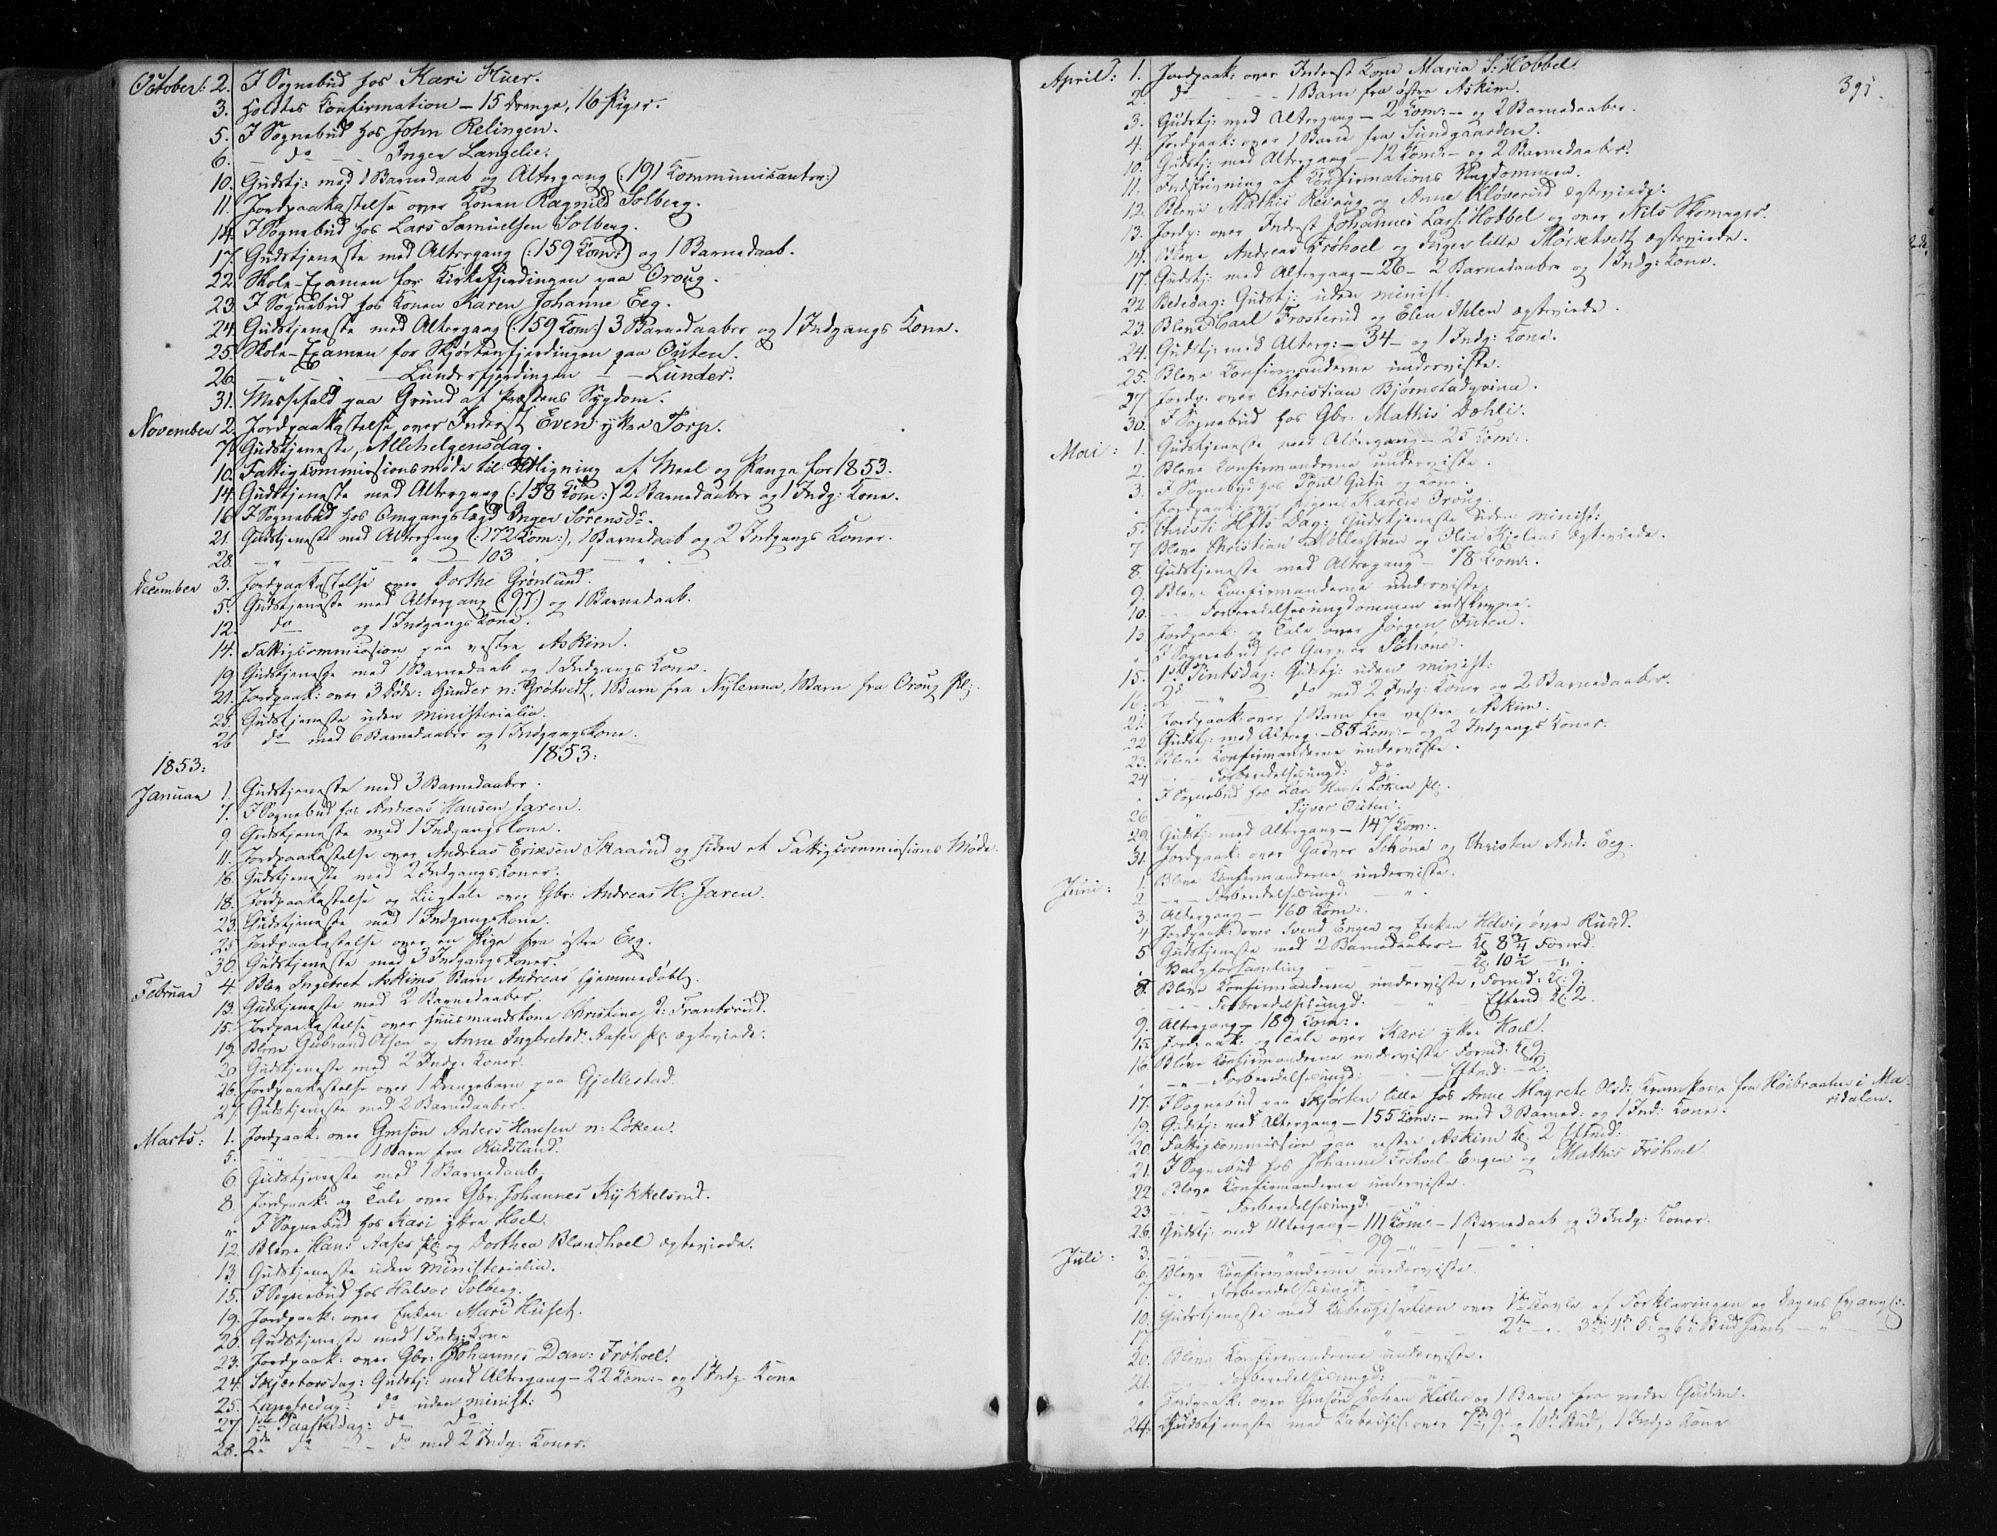 October: 2. I Sognebud hos Kari Huer.
3. Holdtes Konfirmation – 15 Drenge, 16 Piger.
5. I Sognebud hos John Relingen.
6. – do – – Inger Langelie.
10. Gudstj: med 1 Barnedaab og Altergang (:191 Kommunicanter:)
11. Jordpaakastelse over Konen Ragnild Solberg.
14. I Sognebud hos Lars Samuelsen Solberg.
17. Gudstjeneste med Altergang (:159 Kom:) og 1 Barnedaab.
22. Skole-Examen for Kirkefjerdingen paa Oroug.
23. I Sognebud hos Konen Karen Johanne Eeg.
24. Gudstjeneste med Altergang (:159 Kom:) 3 Barnedaaber og 1 Indgangs Kone.
25. Skole-Examen for Skjørtenfjerdingen paa Outen.
26. – " – – Lundersfjerdingen – – Lunder.
31. Messefald paa Grund af Præstens Sygdom.
November 2. Jordpaakastelse over Inderst Even ykre Torp.
7. Gudstjeneste, Allehelgensdag.
10. Fattigcommissionsmøde til Udligning af Meel og Penge for 1853.
14. Gudstjeneste med Altergang (:158 Kom:) 2 Barnedaaber og 1 Indg: Kone.
16. I Sognebud hos Omgangslægd Inger Sørensdr.
21. Gudstjeneste med Altergang (:172 Kom:), 1 Barnedaab og 2 Indgangs Koner.
28. – " – – " – 103 – 1 – " –
December 3. Jordpaakastelse over Dorthe Grønlund.
5. Gudstjeneste med Altergang (:97) og 1 Barnedaab.
12. do og 1 Indgangskone.
14. Fattigcommission paa vestre Askim.
19. Gudstjeneste med 1 Barnedaab og 1 Indgangs Kone.
21. Jordpaak: over 3 Døde: Gunder n: Grøtvedt, 1 Barn fra Nylenna, 1 Barn fra Oroug pl:
25. Gudstjeneste uden Ministerialia.
26 do med 6 Barnedaaber og 1 Indgangskone.
1853: 1853:
Januar 1. Gudstjeneste med 3 Barnedaaber.
7. I Sognebud hos Andreas Hansen Jaren.
9. Gudstjeneste med 1 Indgangskone.
11. Jordpaakastelse over Andreas Eriksen Skaarud og siden et Fattigcommissions Møde.
16. Gudstjeneste med 2 Indgangskoner.
18. Jordpaakastelse og Liigtale over Gbr: Andreas H: Jaren.
23. Gudstjeneste med 1 Indgangskone.
25. Jordpaakastelse over en Pige fra østre Eeg.
30. Gudstjeneste med 3 Indgangskoner.
Februar 4. Blev Ingebret Askims Barn Andreas hjemmedøbt.
13. Gudstjeneste med 2 Barnedaaber.
15. Jordpaakastelse over Huusmandskone Christine
19. Bleve Gubrand Olsen og Anne Ingebretsd: Aaser pl: ægteviede.
20. Gudstjeneste med 2 Indg: Koner.
26. Jordpaakastelse over 1 Drengebarn paa Gjellestad.
27. Gudstjeneste med 2 Barnedaaber.
Marts: 1. Jordpaak: over Gmsøn Anders Hansen n: Løken.
5. – " – – 1 Barn fra Rudsland.
6. Gudstjeneste med 1 Barnedaab.
8. Jordpaak: og Tale over Gbr: Johannes Kykkelsrud.
" I Sognebud hos Kari ykre Hoel.
12. Bleve Hans Aaser pl: og Dorthea Blundhoel ægteviede.
13. Gudstjeneste uden Ministerialia.
15. I Sognebud hos Halvor Solberg.
19. Jordpaak: over Enken Mari Huset.
20. Gudstjeneste med 1 Indg: Kone
23. Jordpaak: over Gbr: Johannes Dan: Frøhoel.
24. Skjærtorsdag: Gudstj: med Altergang – 22 Kom: – og 1 Indg. Kone
25. Langfredag: do uden minist:
27. 1ste Paaskedag: do do
28. 2den do – – do med 2 Indg: Koner.
395.
April: 1. Jordpaak: over Inderst Kone Maria S: Hobbel.
2. do – – – 1 Barn fra østre Askim.
3. Gudstj: med Altergang – 2 Kom: – og 2 Barnedaaber.
4. Jordpaak: over 1 Barn fra Sundgaarden.
10. Gudstj: med Altergang – 12 Kom: – og 2 Barnedaaber.
11. Indskrivning af Konfirmations Ungdommen.
12. Bleve Mathis Resoug og Anne Kløverud ægteviede:
13. Jordp: over Inderst Johannes Lars: Hobbel og over Nils Skomager.
14. Bleve Andreas Frøhoel og Inger lille Mørketvedt ægteviede.
17. Gudstj: med Altergang – 26 – 2 Barnedaaber og 1 Indg: Kone.
22. Bededag: Gudstj: uden minist.
23. Bleve Carl Frosterud og Elen Ihlen ægteviede.
24. Gudstj: med Alterg: – 34 – og 1 Indg: Kone.
25. Bleve Konfirmanderne underviste.
27. Jordp. over Christian Bjørnstadgvina.
30. I Sognebud hos Gbr: Mathis Døhli.
Mai: 1. Gudstjeneste med Altergang – 25 Kom:.
2. Bleve Konfirmanderne underviste.
3. I Sognebud hos Poul Gutu og Kone.
" Jordpaak: over Pigen Karen Oroug.
5. Christi Hfts Dag: Gudstjeneste uden minist:
7. Bleve Christian Møllersteen og Olia Kjelaas ægteviede.
8. Gudstjeneste med Altergang – 78 Kom:.
9. Bleve Konfirmanderne underviste.
10. – – Forberedelsesungdommen indskreven.
13. Jordpaak: og Tale over Jørgen Outen.
" I Sognebud hos Gasper Schøne.
15. 1ste Pintsdag: Gudstj: uden minist:
16. 2d – " – do med 2 Indg: Koner og 2 Barnedaaber.
21. Jordpaak: over 1 Barn fra vestre Askim.
22. Gudstj: med Alterg. – 85 Kom: – og 2 Indgangs Koner.
23. Bleve Konfirmanderne underviste.
24 – – Forberedelsesungd: do
" I Sognebud hos Lars Hans: Løken pl:
26 – " – Syver Outen.
29. Gudstj: med Altergang – 147 Kom:.
31. Jordpaak: over Gasper Schøne og Christen And: Eeg.
Juni: 1. Bleve Konfirmanderne underviste.
2. – – Forberedelsesungd: – " –
3. Altergang – 160 Kom:.
4. Jordpaak: over Svend Engen og Enken Helvig øvre Ruud.
5. Gudstjeneste med 2 Barnedaaber – Kl. 8 3/4 Formd.
" Valgforsamling – – – Kl. 10 1/2 – " –
8. Bleve Konfirmanderne underviste, Formd: Kl: 9.
– – Forberedelsesungd: – " – Eftmd: Kl: 2.
9. Altergang – 189 Kom:.
15. Jordpaak: og Tale over Kari ykre Hoel.
16. Bleve Konfirmanderne underviste Formd: Kl 9.
" – " – Forberedelsesungd: – Eftmd: – 2.
17. I Sognebud paa Skjørten lille hos Anne Magrete Olsd: Kramkone fra Høibraaten i Ma-
ridalen.
19. Gudstj: med Altergang – 155 Kom: – med 3 Barned: og 1 Ind: Kone.
20. Fattigcommission paa vestre Askim Kl. 2 Eftmd:
21. I Sognebud hos Johanne Frøhoel Engen og Mathis Frøhoel
22. Bleve Konfirmanderne underviste.
23. – – Forberedelsesungd: – " –
26. Gudstj: med Altergang – 111 Kom: – 1 Barnedaab og 3 Indg: Koner.
Juli: 3. – " – – " – 99 – " – 1 – " –
6. Bleve Konfirmanderne underviste.
7. – – Forberedelsesungd: – " –
10. Gudstjeneste med Katechisation over 1ste Parts af Forklaringen og Dagens Evangl:
17. – " – – " – 2den – – 3die, 4de, 5te og 6te Bud samt – " –
20. Bleve Konfirmanderne underviste.
21. – – Forberedelsesungd: – " –
" Jordpaak: over Gmsøn Johan Heller og 1 Barn fra nedre Gudim.
24. Gudstjeneste med Katechis: over 7de, 9de og 10de Bud, 1 Indgs Kone